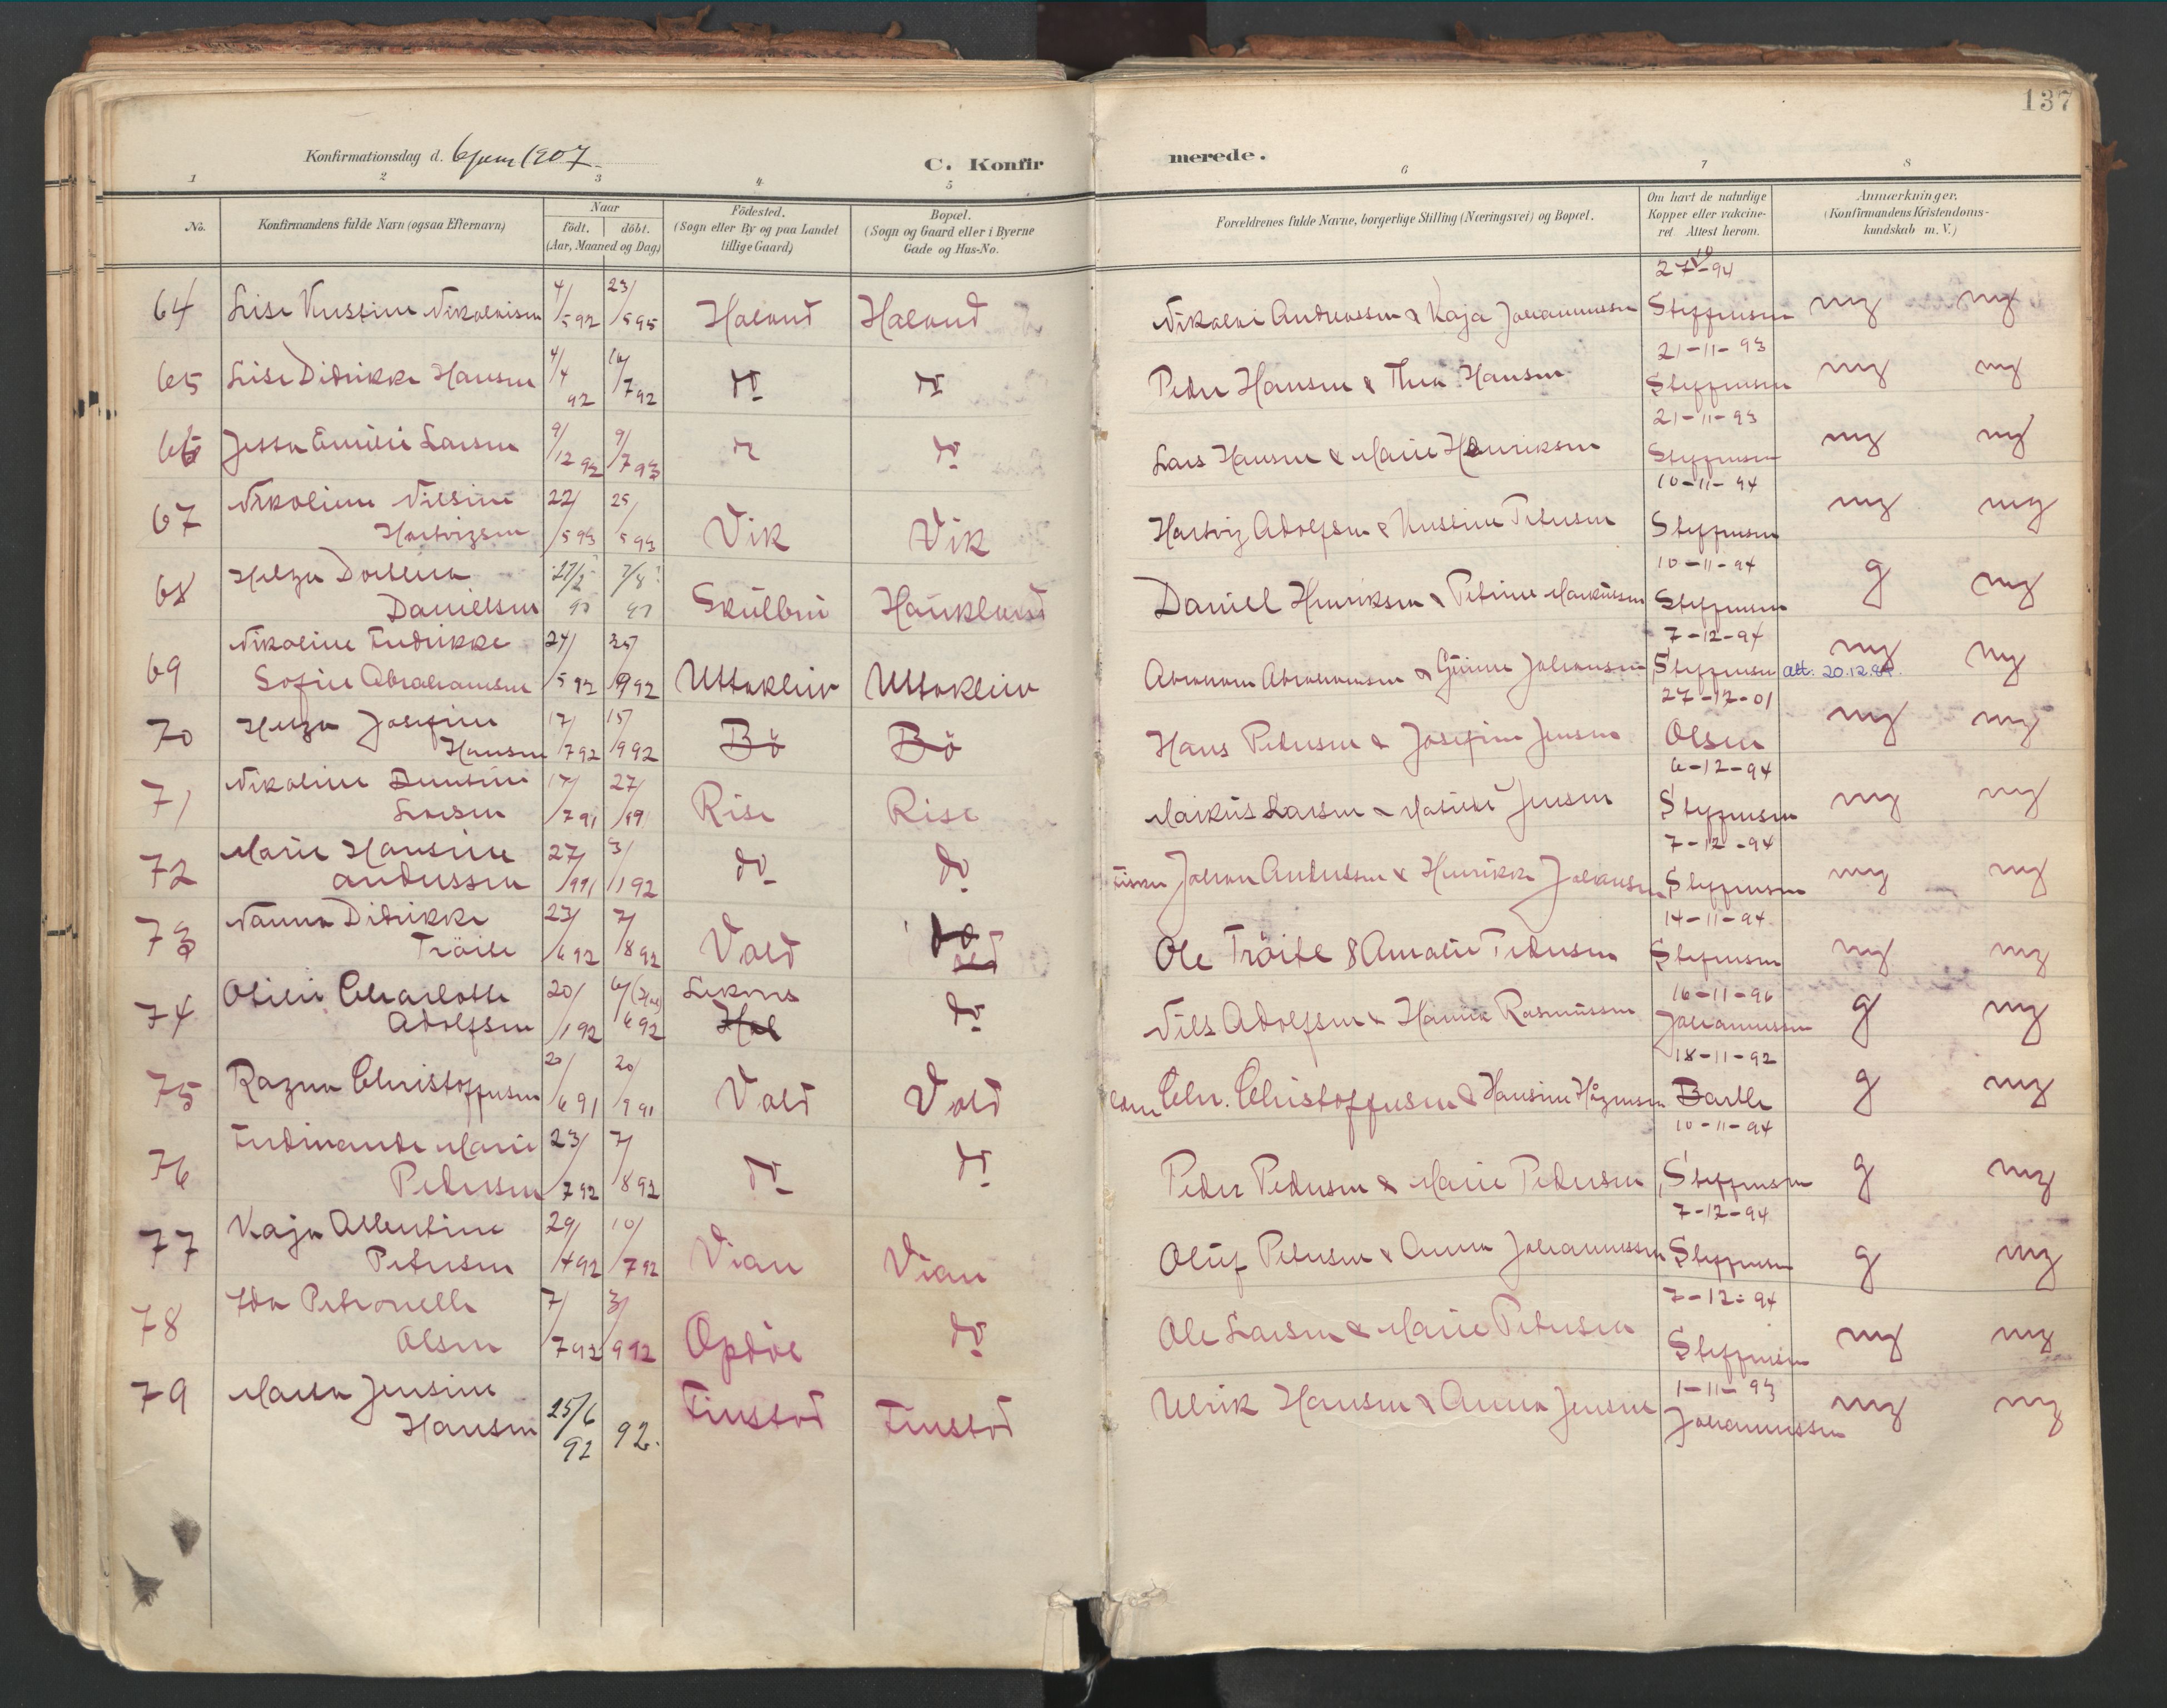 137
Konfirmationsdag d. 6 juni 1907.
C. Konfirmerede.
1 2 3 4 5 6 7 8
No.
Konfirmandens fulde Navn (ogsaa Efternavn)
Naar
født. døbt.
(Aar, Maaned og Dag)
Födested.
(Sogn eller By og paa Landet
tillige Gaard)
Bopæl.
(Sogn og Gaard eller i Byerne
Gade og Hus-No.
Forældrenes fulde Navne, borgerlige Stilling (Næringsvei) og Bopæl.
Om havt de naturlige
Kopper eller vakcine-
ret Attest herom.
Anmærkninger.
(Konfirmandens Kristendoms-
kundskab m. V.)
64 Lise Kristine Nikolaisen 4/5 92 23/5 95 Haland Haland Nikolai Andreassen & Kaja Johannessen 27-10-94 Steffensen mg mg
65 Lise Didrikke Hansen 4/4 92 16/7 92 do do Peder Hansen & Thea Hansen 21-11-93 Steffensen mg mg
66 Jessa Emilie Larsen 9/12 92 9/7 93 do do Lars Hansen & Marie Henriksen 21-11-93 Steffensen mg mg
67 Nikoline Nilsine
Hartvigsen 22/5 93 25/5 93 Vik Vik Hartvig Adolfsen & Kristine Petersen 10-11-94 Steffensen mg mg
68 Helga Dorthea
Danielsen 27/2 7/8 Skulbru Haukland Daniel Henriksen & Petrine Markussen 10-11-94 Steffensen g mg
69 Nikoline Fredrikke
Sofie Abrahamsen 24/5 92 25/9 92 Uttakleiv Uttakleiv Abraham Abrahamsen & Johansen 7-12-94 Steffensen att. 20.12.84. mg mg
70 Helga Josefine
Hansen 17/7 92 15/9 92 Bö Bö Hans Pedersen & Josefine Jensen 27-12-01 Olsen mg mg
71 Nikoline
Larsen 17/7 91 27/9 91 Rise Rise Markus Larsen & Matilde Jensen 6-12-94 Steffensen mg mg
72 Marie Hansine
Andersen 27/9 91 3/1 92 do do Johan Andersen & Henrikke Johansen 7-12-94 Steffensen mg mg
73 Nanna Didrikke
Tröite 23/6 92 7/8 92 Vold do Ole Tröite & Amalie Pedersen 14-11-94 Steffensen mg mg
74 Otilie Charlotte
Adolfsen 20/1 92 6/6 92 (Hol) Leknes Hol do Nils Adolfsen & Hanna Rasmussen 16-11-96 Johannessen g mg
75 Ragna Christoffersen 20/6 91 20/9 91 Vold Vold Chr. Christoffersen & Hansine Hågensen 18-11-92 Barth g mg
76 Ferdinande Marie
Pedersen 23/7 92 7/8 92 do do Peder Pedersen & Marie Pedersen 10-11-94 Steffensen g mg
77 Kaja Albertine
Petersen 29/4 92 10/7 92 Vian Vian Oluf Petersen & Anna Johannessen 7-12-94 Steffensen g mg
78 Ida Petronelle
Olsen 7/7 92 3/9 92 Opdöl do Ole Larsen & Marie Petersen 7-12-94 Steffensen mg mg
79 Marta Jensine
Hansen 25/6 92 92. Finstad Finstad Ulrik Hansen & Anna Jensen 1-11-93 Johannessen mg mg